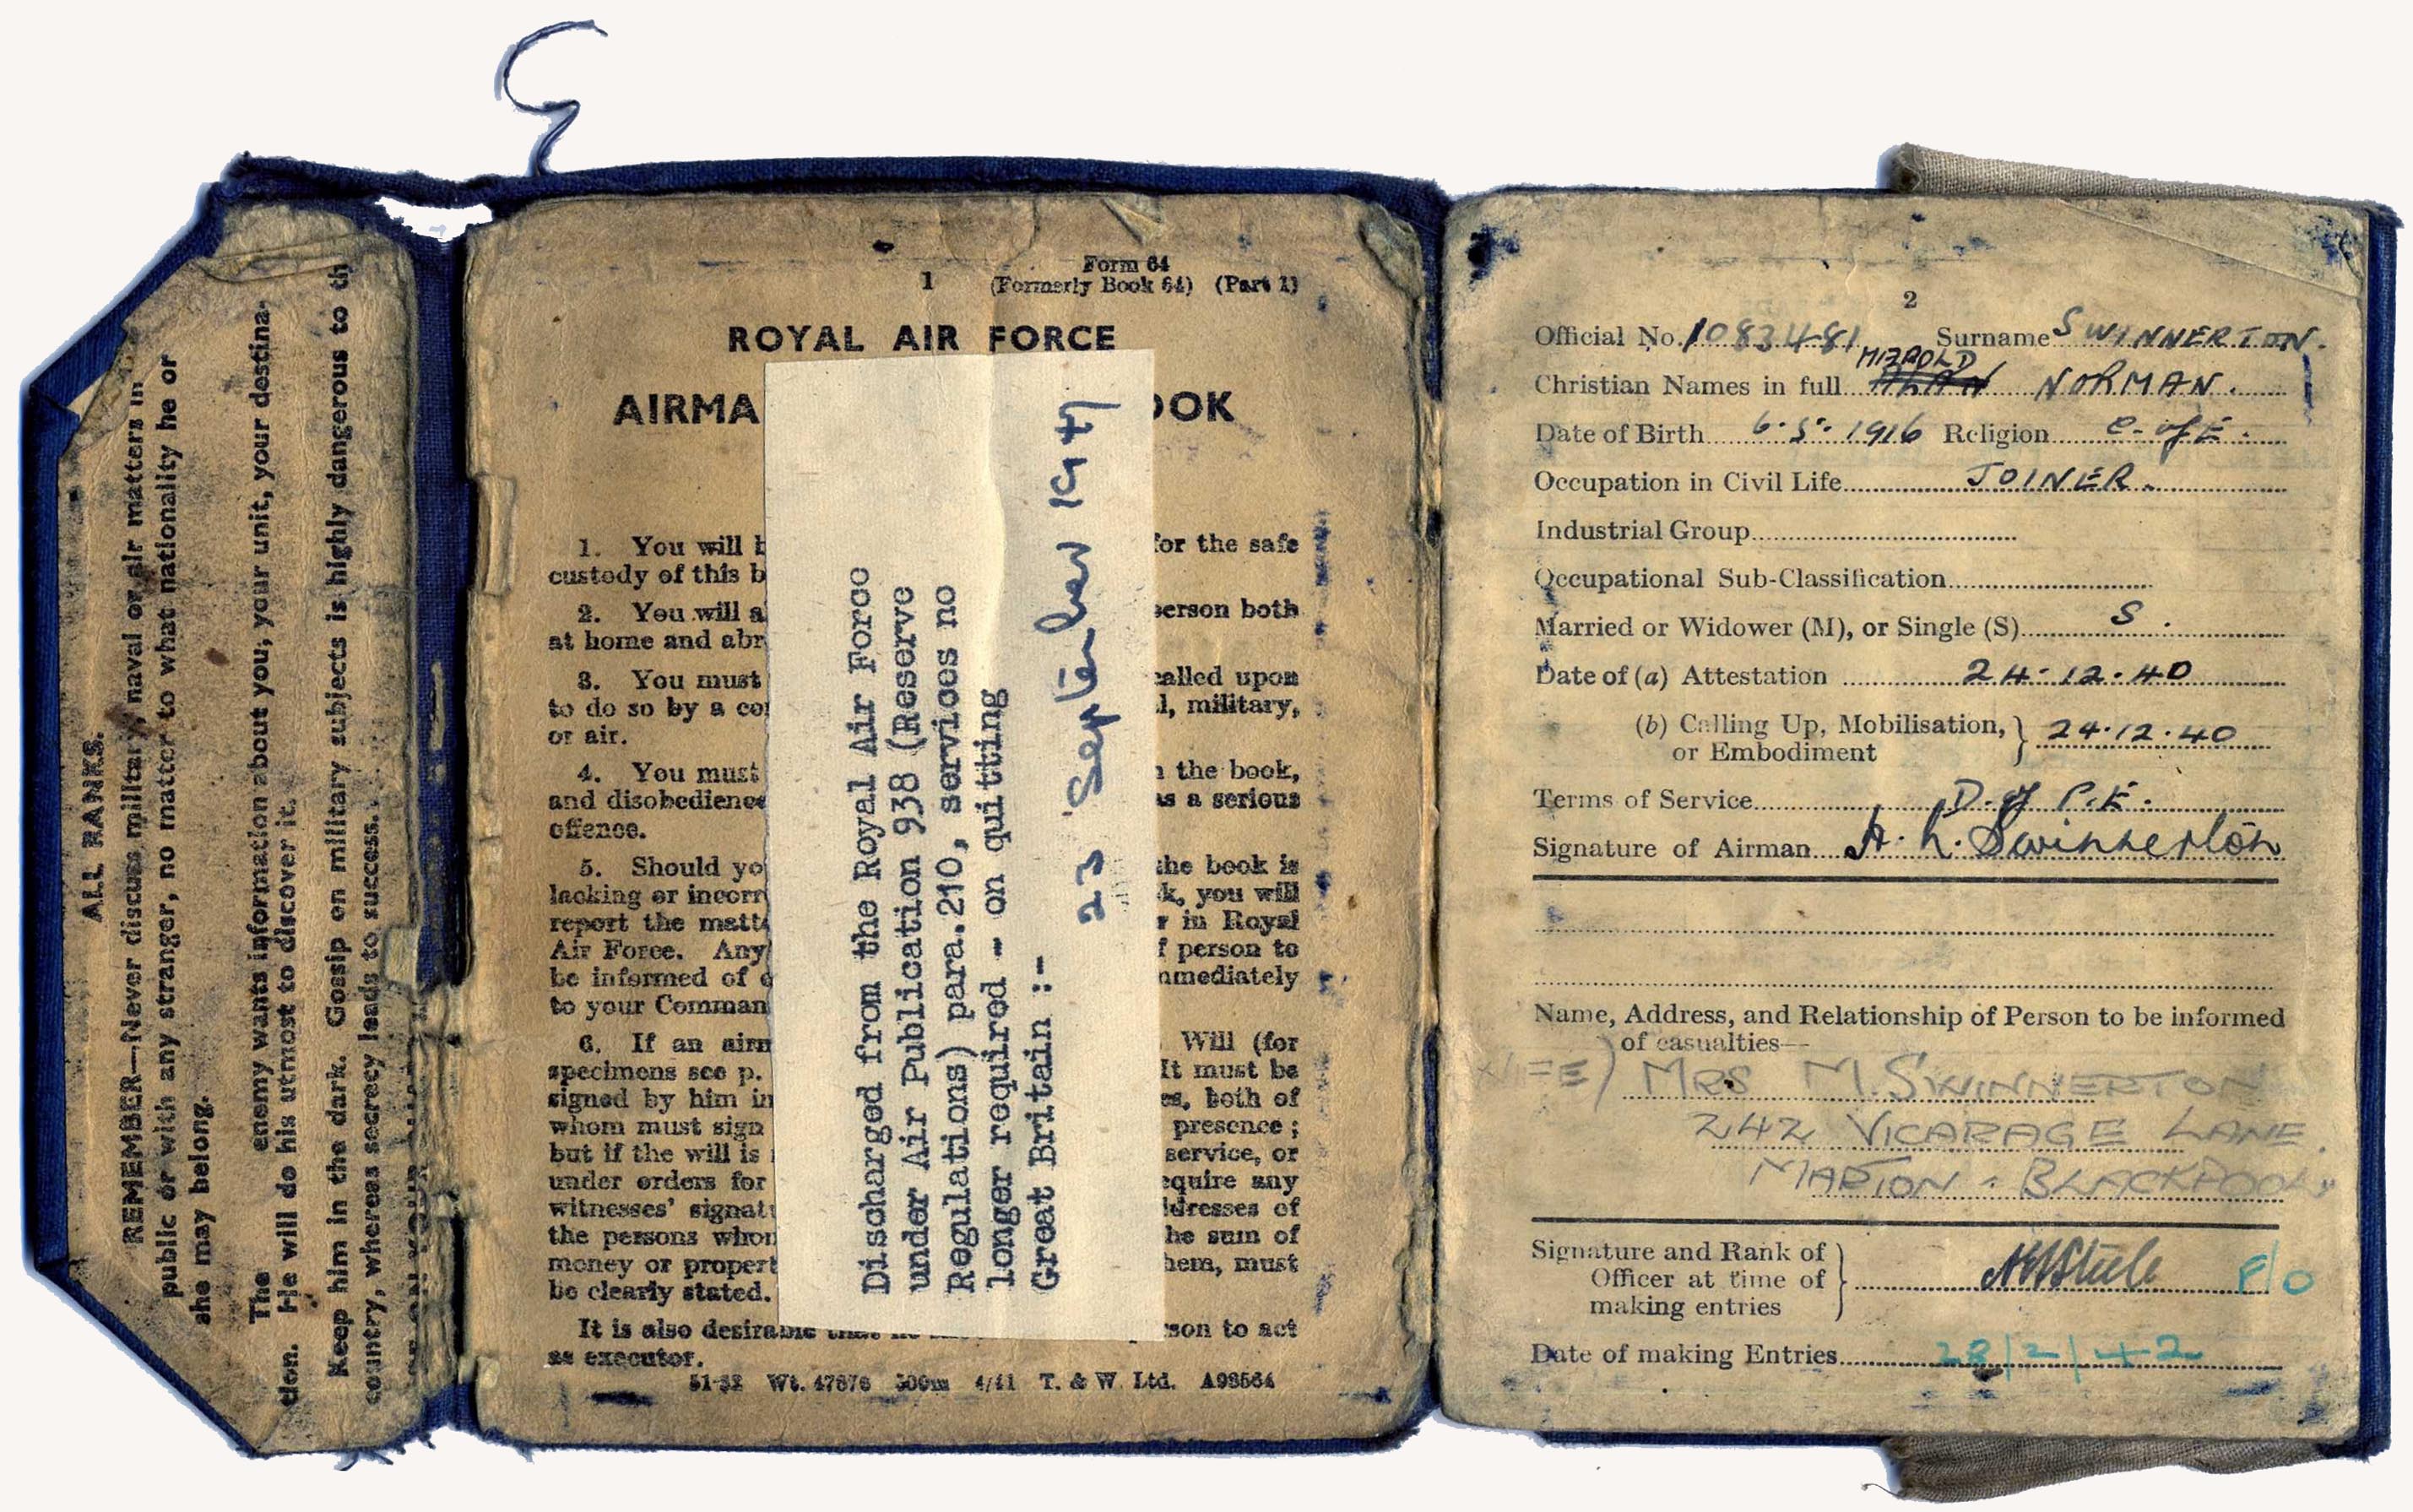 ALL RANKS.
REMEMBER—Never discuss military, naval or air matters in
public or with any stranger, no matter to what nationality he or
she may belong.
The enemy wants information about you, your unit, your destina-
tion. He will do his utmost to discover it.
Keep him in the dark. Gossip on military subjects is highly dangerous to th
country, whereas secrecy leads to success.
1
Form 64
(Formerly Book 64) (Part 1)
ROYAL AIR FORCE
AIRMA OOK
1. You will b for the safe
custody of this b
2. You will a person both
at home and abr
3. You must called upon
to do so by a co l, military,
or air.
4. You must n the book,
and disobedience as a serious
offence.
5. Should yo the book is
lacking or incorr k, you will
report the matt r in Royal
Air Force. Any f person to
be informed of c mmediately
to your Comman
6. If an airm Will (for
specimens see p. It must be
signed by him in es, both of
whom must sign presence ;
but if the will is service, or
under orders for equire any
witnesses' signat ddresses of
the persons whom he sum of
money or propert hem, must
be clearly stated.
It is also desirable son to act
as executor.
51-32 Wt. 47676 500m 4/41 T. & W. Ltd. A98564
Discharged from the Royal Air Force
under Air Publication 938 (Reserve
Regulations) para.210, services no
longer required - on quitting
Great Britain :- 23 September 1947
2
Official No. 1083481 Surname SWINNERTON.
Christian Names in full NORMAN.
Date of Birth 6.5.1916 Religion C. of E.
Occupation in Civil Life JOINER.
Industrial Group
Occupational Sub-Classification
Married or Widower (M), or Single (S) S.
Date of (a) Attestation 24.12.40
(b) Calling Up, Mobilisation, or Embodiment } 24.12.40
Terms of Service D. of P.E.
Signature of Airman Swinnerton
Name, Address, and Relationship of Person to be informed
of casualties—
WIFE) MRS M. SWINNERTON
242 VICARAGE LANE.
MARTON - BLACKPOOL
Signature and Rank of
Officer at time of
making entries } F/O
Date of making Entries 28/2/42